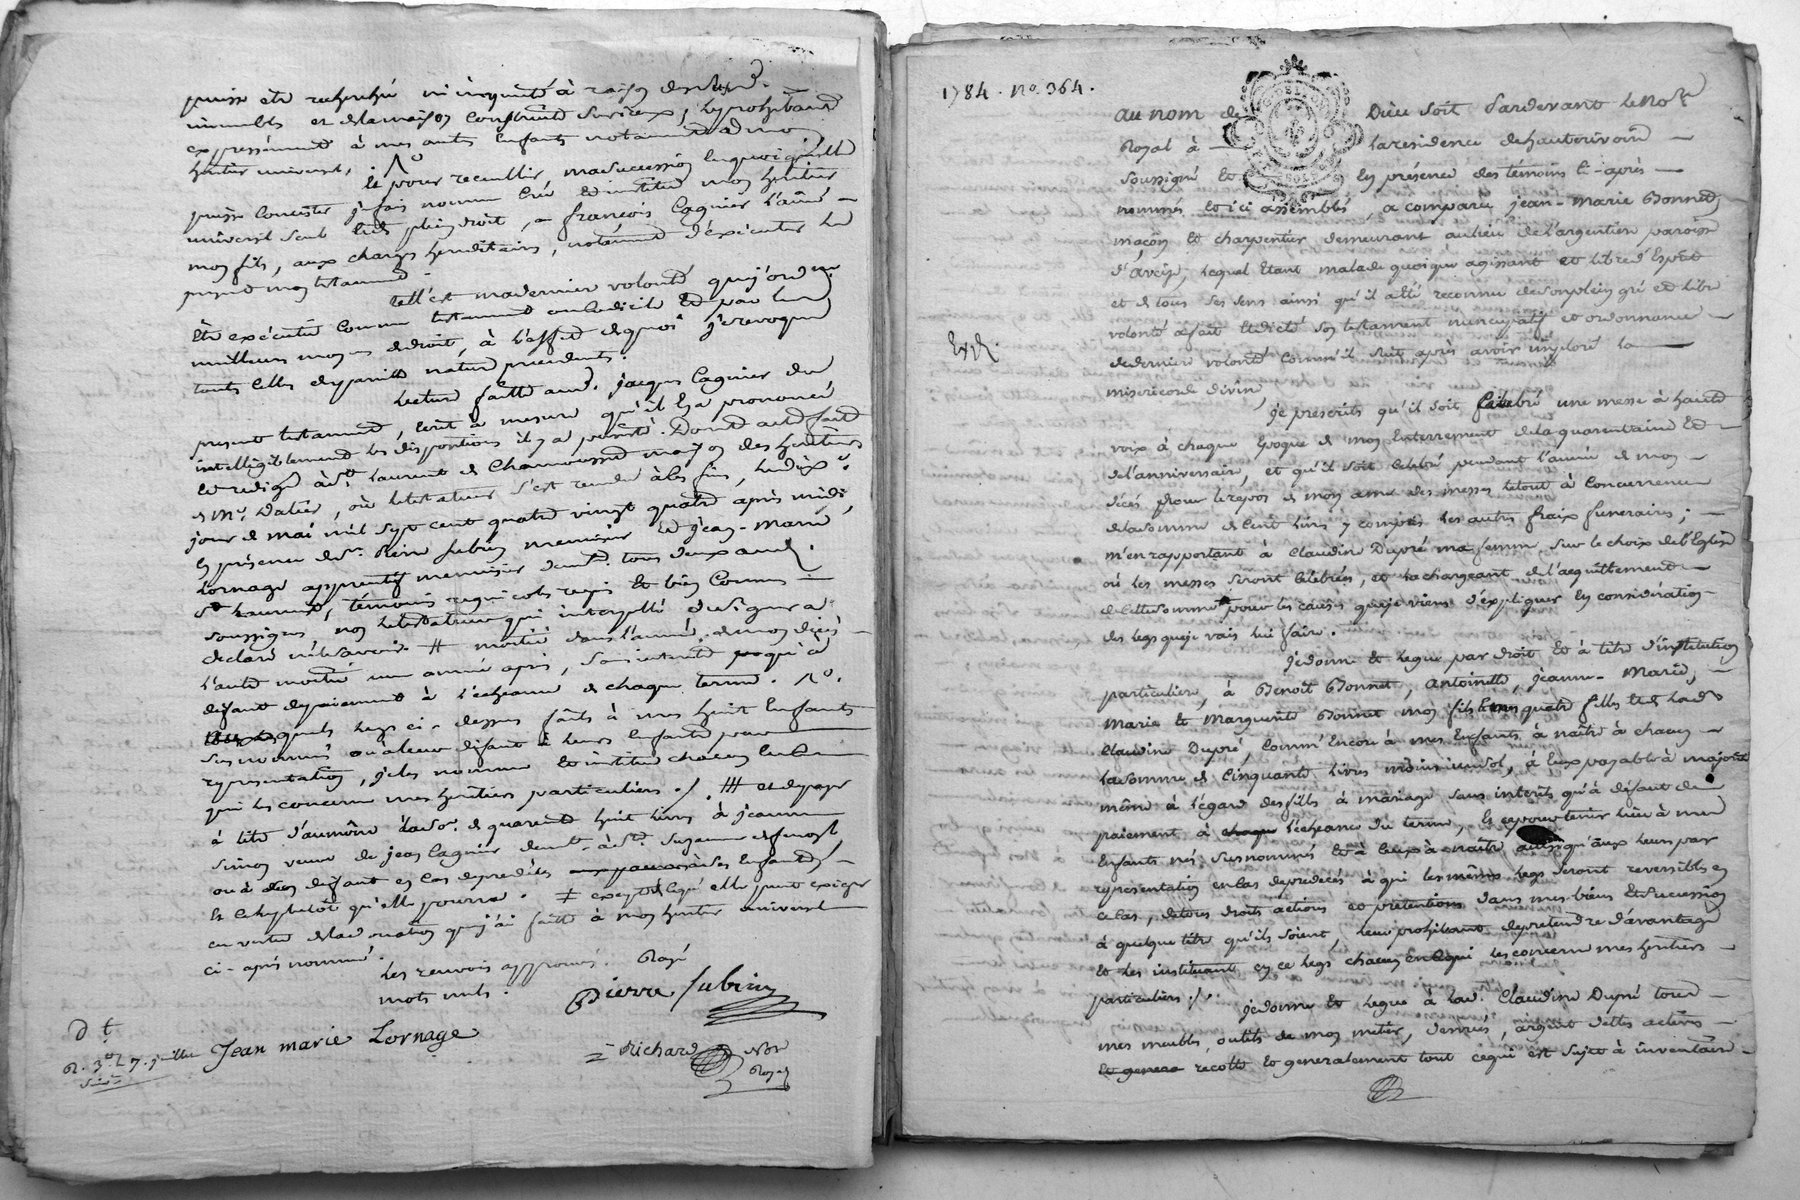 puisse etre recherché ni inquiété à raison desdits
immeubles et de la maison construite sur iceux, leur prohibant
expressément à mes autres enfants notamment à mon
héritier universel,
Et pour recueillir ma succession en quoi qu'elle
puisse consister je fais nomme crée et institue mon héritier
universel seul et de plein droit, françois Cagnier l'aîné
mon fils, aux charges héréditaires, notamment d'exécuter le
présent mon testament.
telle est ma derniere volonté que j'ordonne
être exécutée comme testament ou codicile et par tous
meilleurs moyens de droit, à l'effet de quoi je revoque
toutes celles de pareille nature précédentes.
Lecture faitte aud. jacques Cagnier du
présent testament, écrit à mesure qu'il l'a prononcé
intelligiblement les dispositions il y a persisté. Dont acte fait
et redigé à St. Laurent de Chamousset maison des héritiers
de Mr. Dalier, où le testateur s'est rendu à ces fins, le dix
jour de mai mil sept cent quatre vingt quatre après midi
En présence de Sr. Pierre Subrin menuisier Et jean-Marie
Lornage apprentif menuisier demt. tous deux aud.
St. Laurent, témoins requis et bien connus
soussignés, non le testateur qui interpellé de signer a
declaré ne le savoir. # moitié dans l'année de mon décès
l'autre moitié une année après, sans intérêts jusqu'à
défaut de paiement à l'echeance de chaque terme.
quels legs ci-dessus faits à mes huit Enfants
sus nommés ou à leur défaut à leurs Enfants par
représentation, je les nomme et institue chacun en ce
qui les concerne mes héritiers particuliers. /. # et de payer
à titre d'aumône la so. de quarante huit livres à jeanne
simon veuve de jean Cagnier demt. à Ste.
ou à son défaut en cas de prédécès à ses Enfants
Et le plutôt qu'elle pourra. ≠ excepté ce qu'elle peut exiger
en vertu de la donation que j'ai faitte à mon heritier universel
ci-après nommé.
Les renvois approuvés. Rayé
mots nuls.
Pierre Subrin
Jean marie Lornage
Richard Nore Royal
d t.
R. 3# 27. juillet
1784. No. 364.
Exd.
Au nom de Dieu soit Pardevant le Nore
Royal à la residence de hauterivoire
soussigné Et En présence des témoins ci-après
nommés et ici assemblés, a comparu jean-Marie Bonnet
maçon et charpentier demeurant au lieu de l'argentiere paroisse
d'Aveize, lequel Etant malade quoique agissant et libre d'Esprit
et de tous ses sens ainsi qu'il a été reconnu de son plein gré et libre
volonté a fait et dicté son testament nuncupatif et ordonnance
de derniere volonté comme il suit après avoir imploré la
misericorde divine,
je prescrits qu'il soit celebré une messe à haute
voix à chaque Epoque de mon Enterrement de la quarantaine Et
de l'anniversaire, et qu'il soit célébré pendant l'année de mon
décès pour le repos de mon ame des messes le tout à concurrence
de la somme de cent livres y compris les autres fraix funeraires;
m'en rapportant à Claudine Dupré ma femme sur le choix de l'Eglise
où les messes seront célébrées, et la chargeant de l'acquittement
de cette somme pour les causes que je viens d'expliquer En considération
des legs que je vais lui faire.
je donne et legue par droit et à titre d'institution
particuliere, à Benoît Bonnet, Antoinette, jeanne-Marie,
Marie et Marguerite Bonnet mon fils et mes quatre filles et de lad.
Claudine Dupré, comm'Encore à mes Enfants à naître à chacun
la somme de cinquante livres moins un sol, à Eux payable à majorité
même à l'égard des filles à mariage sans interêts qu'à défaut de
paiement à chaque l'echeance du terme, Et ce pour tenir lieu à mes
Enfants nés susnommés et à ceux à naître ainsi qu'aux leurs par
représentation en cas de predecès à qui les mêmes legs seront reversibles en
ce cas, de tous droits actions et pretentions dans mes biens Et succession
à quelque titre qu'ils soient, leur prohibant de pretendre d'avantage
Et les instituant en ce legs chacun en ce qui les concerne mes héritiers
particuliers. /.
je donne et legue à lad. Claudine Dupré tous
mes meubles, outils de mon metier, denrées, argent dettes actives
et genera recolte et generalement tout ce qui est sujet à inventaire